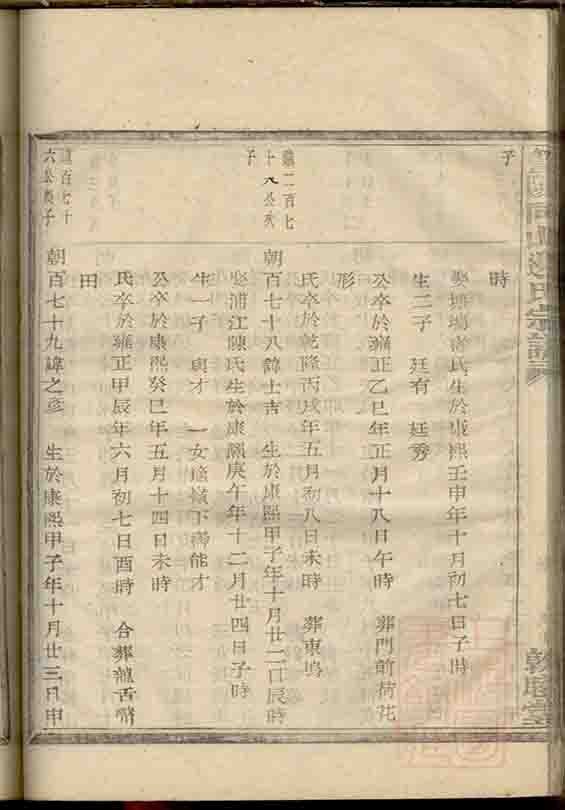 子
時
娶塘塢畬氏生於康熙壬申年十月初七日子時
生二子 廷有 廷秀
公卒於雍正乙巳年正月十八日午時 葬門前荷花
形
氏卒於乾隆丙戌年五月初八日未時 葬東塢
二百七
十八公次
子
朝百七十八諱士吉 生於康熙甲子年十月廿二日辰時
娶浦江陳氏生於康熙庚午年十二月廿四日子時
生一子 貞才 一女 能才
公卒於康熙癸巳年五月十四日未時
氏卒於雍正甲辰年六月初七日酉時 合葬龍舌
田
百七十
六公長子
朝百七十九諱之彦 生於康熙甲子年十月廿三日申
氏宗譜
堂